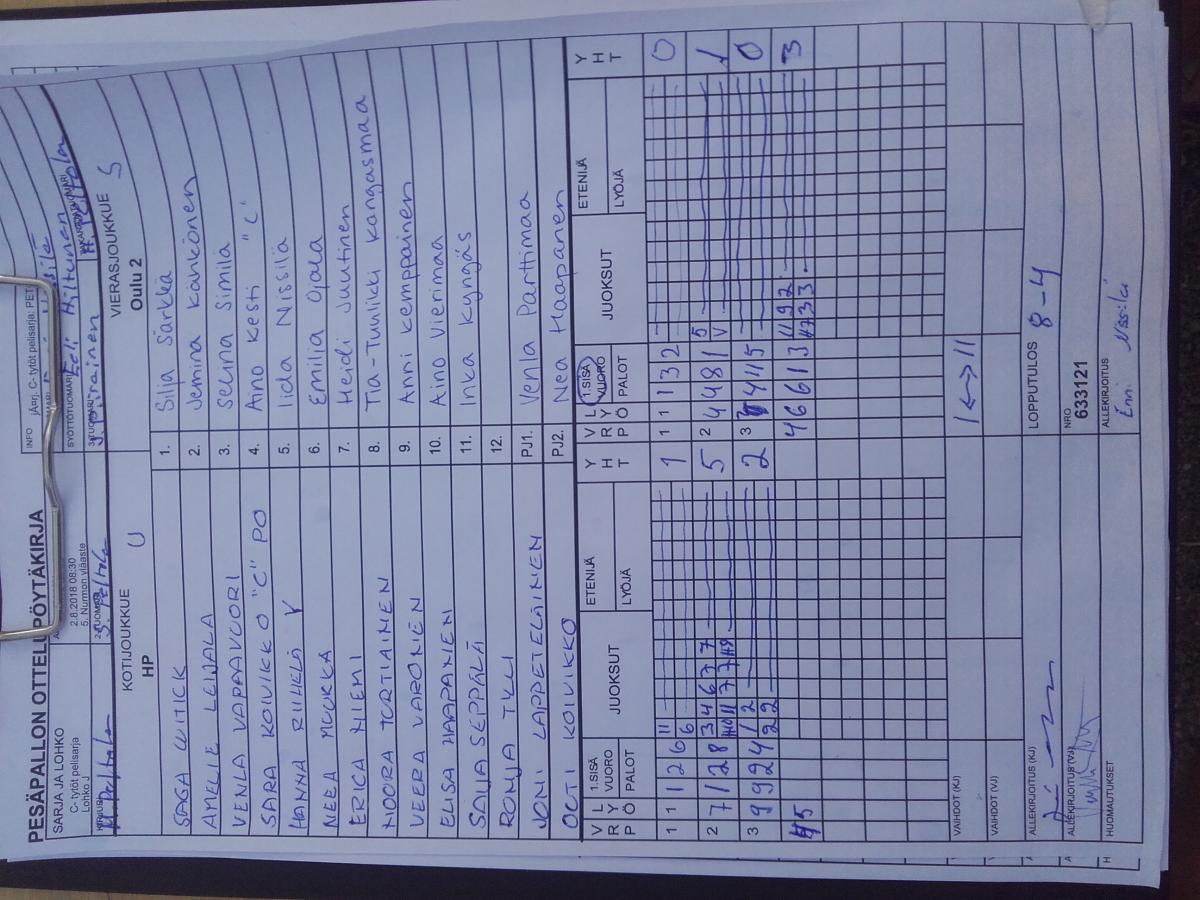 PESÄPALLON OTTELUPÖYTÄKIRJA
SARJA JA LOHKO
C- tytöt pelisarja
Lohko J
2.8.2018 08:30
5. Nurmon yläaste
INFO jÄrj. C- tytöt pelisarja: PET
SYÖTTÖTUOMARI Eeli Hiltunen
KOTIJOUKKUE U
HP
VIERASJOUKKUE S
Oulu 2
SAGA WITICK 1. Silja Särkkä
AMELIE LEIJALA 2. Jemina Kähkönen
VENLA VAPAAVUORI 3. Selina Similä
SARA KOIVIKKO "C" PO 4. Aino Kesti "C"
HANNA RIIHELÄ V 5. Iida Nissilä
NEEA MUUKKA 6. Emilia Ojala
ERICA NIEMI 7. Heidi Juutinen
NOORA TORTIAINEN 8. Tia-Tuulikki Kangasmaa
VEERA VARONEN 9. Anni Kemppainen
ELISA HAAPANEN 10. Aino Vierimaa
SALLA SEPPÄLÄ 11. Inka Kyngäs
RONJA TKLI 12.
JONI LAPPETELÄINEN PJ1. Venla Parttimaa
OUTI KOIVIKKO PJ2. Nea Haapanen
V R L P Y Ö 1.SISÄ VUORO PALOT JUOKSUT ETENIJÄ LYÖJÄ Y H T V R L P Y Ö 1.SISÄ VUORO PALOT JUOKSUT ETENIJÄ LYÖJÄ Y H T
1 1 1 2 6 11 6 1 1 1 1 3 2 0
2 7 1 2 8 3 4 6 7 7 5 2 4 4 8 1 5 V 1
3 9 9 2 4 1 2 2 2 2 3 4 1 5 0
5 4 6 6 1 3 11 9 2 7 3 3 3
VAIHDOT (KJ) 1 <-> 11
VAIHDOT (VJ)
ALLEKIRJOITUS (KJ) LOPPUTULOS 8-4
ALLEKIRJOITUS (VJ) NRO 633121
HUOMAUTUKSET ALLEKIRJOITUS
Enni Nissilä